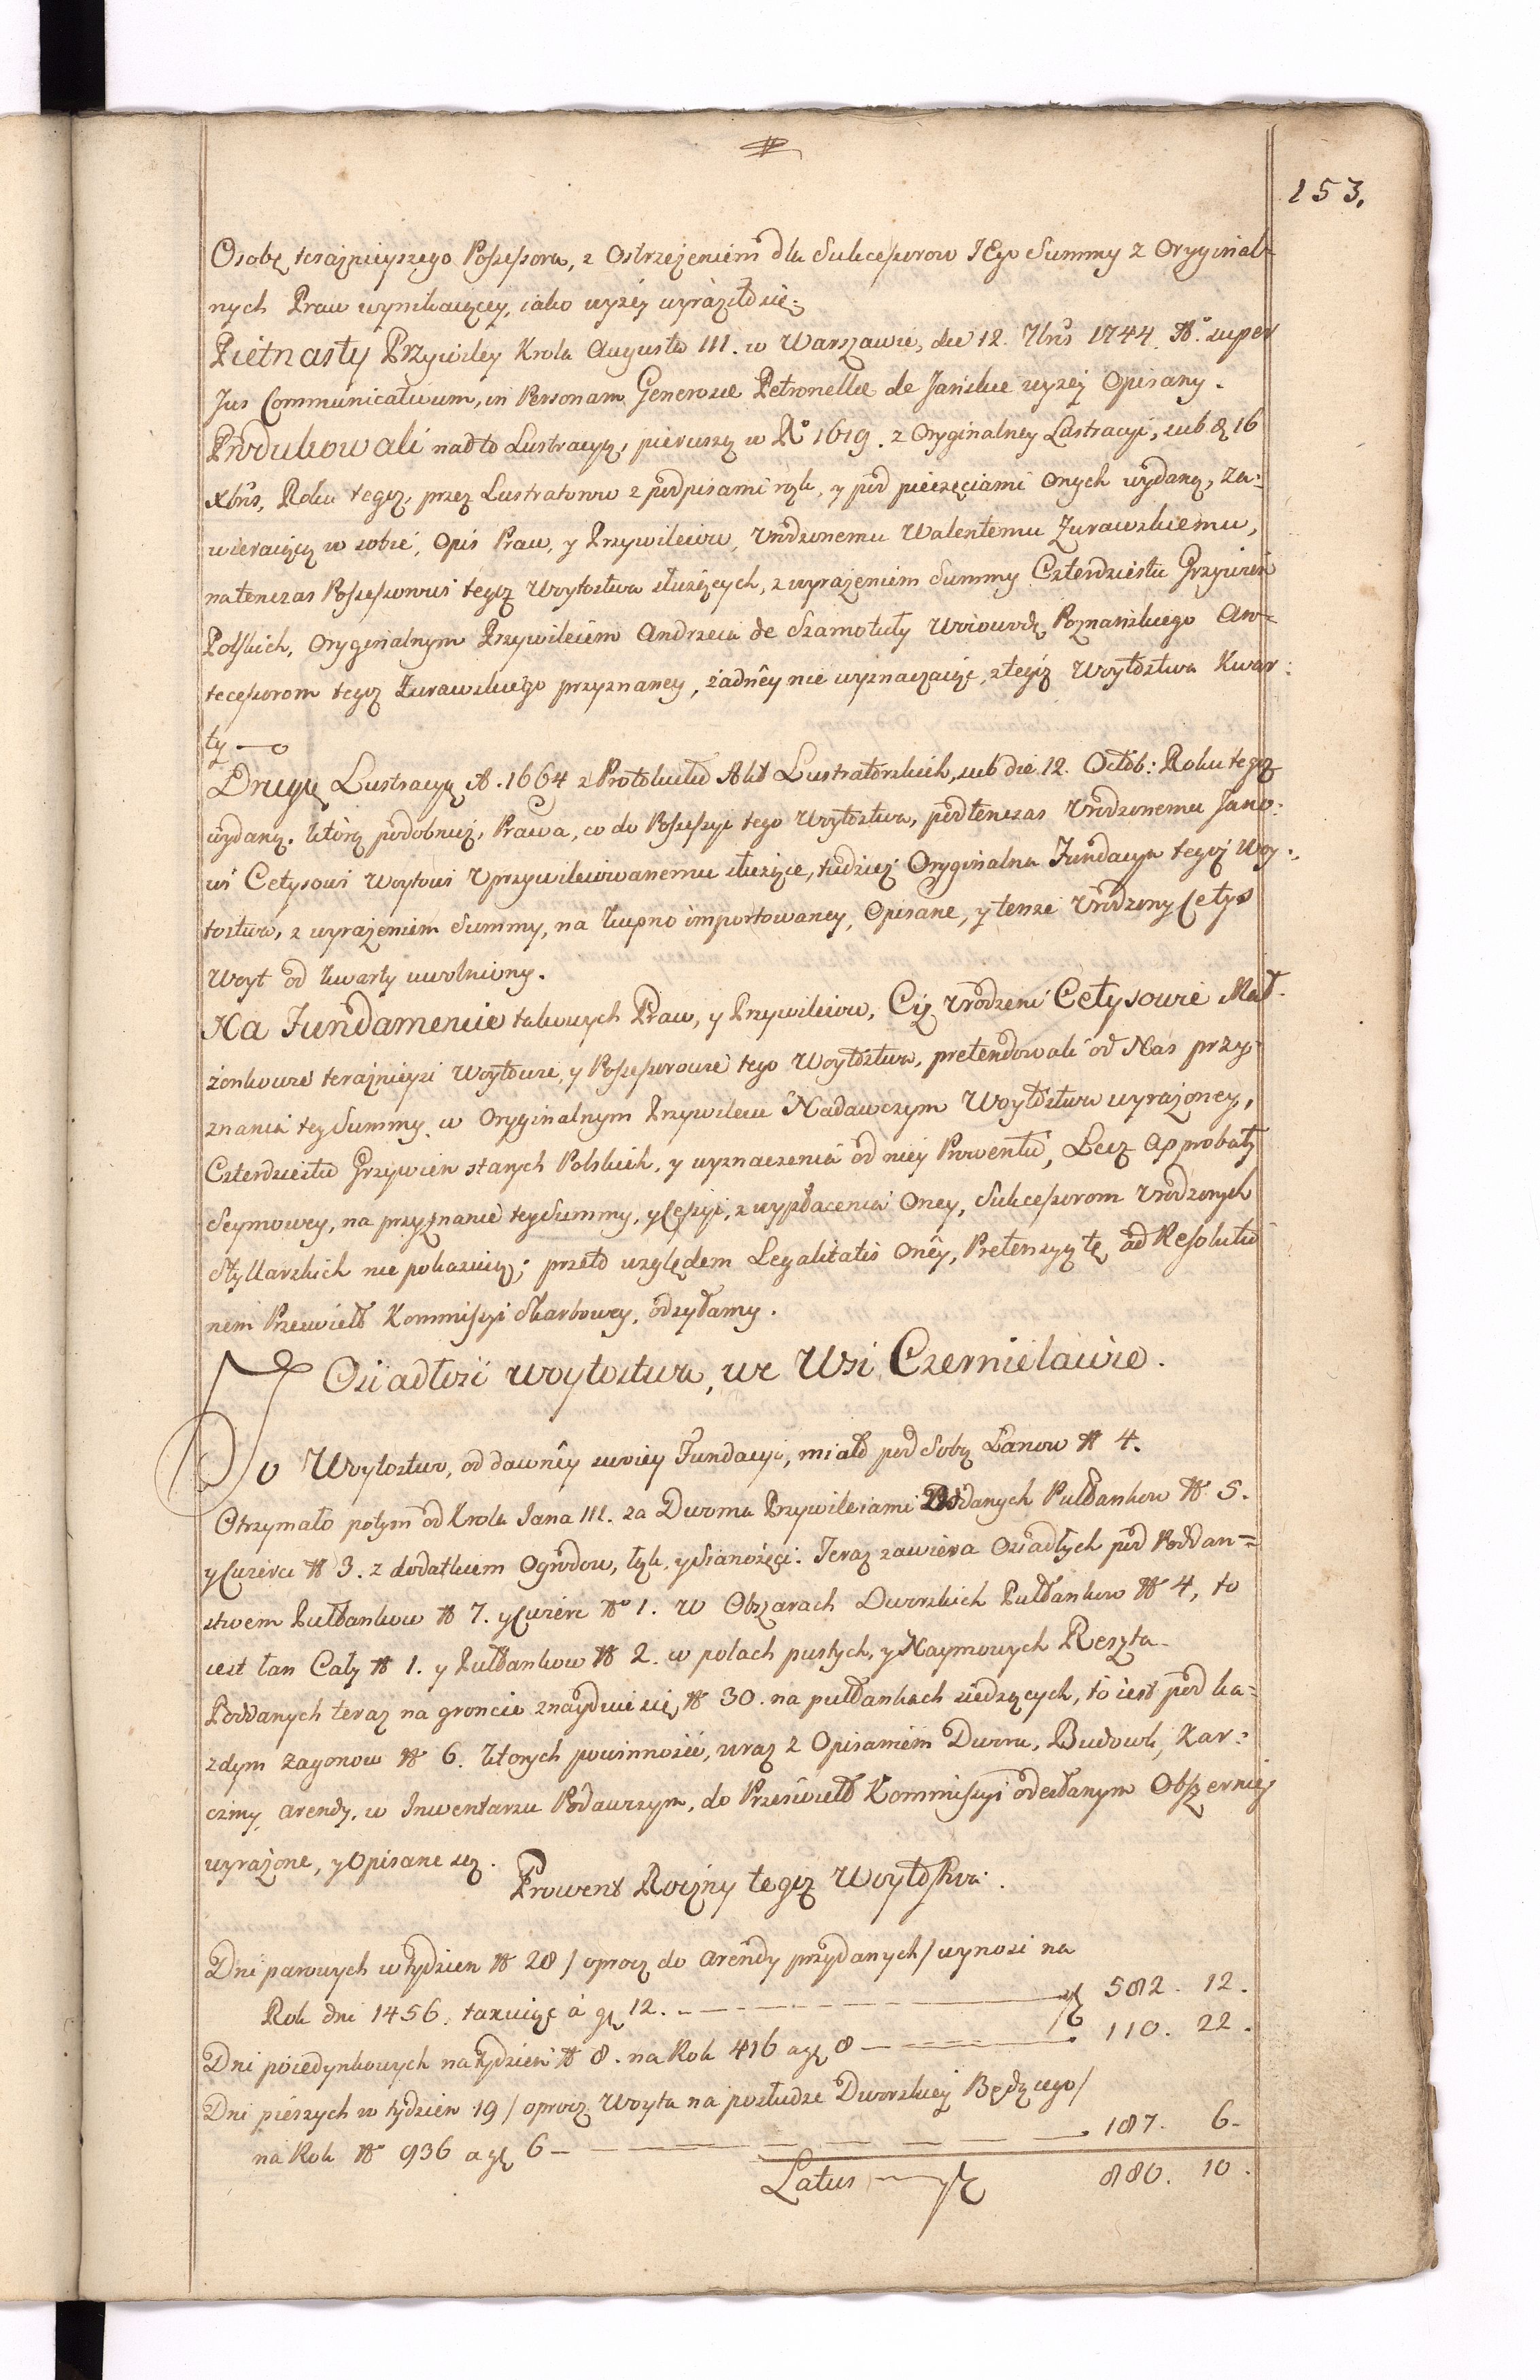 153.
Osobę teraznieyszego Possessora, z Ostrzeżeniem dla Sukcessorow IEgo Summy z Oryginal-
nych Praw wynikaiącey, iako wyżey wyraziło się.
Pietnasty Przywiley Krola Augusta III. w Warszawie, die 12. 7bris 1744. Ao. super
Jus Communicativum, in Personam Generosæ Petronellæ de Jańskie wyżey Opisany.
Produkowali nadto Lustracyą, pierwszą w Ro 1619. z Oryginalney Lustracyi, sub d 16
Xbris, Roku tegoż, przez Lustratorow z podpisami rąk, y pod pieczęciami Onych wydaną, Za-
wieraiącą w sobie, Opis Praw, y Przywileiow, Urodzonemu Walentemu Zurawskiemu,
natenczas Possessorowi tegoż Woytostwa służących, z wyrażeniem Summy Czterdziestu Grzywien
Polskich, Oryginalnym Przywileiem Andrzeia de Szamotuły Woiewodę Poznańskiego An-
tecessorom tegoż Zurawskiego przyznaney, żadney nie wyznaczaiąc, z tegoż Woytostwa Kwar-
ty —o
Drugą Lustracyą A. 1664 z Protokułu Akt Lustratorskich, sub die 12. Octob: Roku tegoż
wydaną. którą podobnież, Prawa, co do Possessyi tego Woytostwa, podtenczas Urodzonemu Jano-
wi Cetysowi Woytowi Uprzywileiowanemu służące, tudzież Oryginalna Fundacya tegoż Woy-
tostwa, z wyrażeniem Summy, na Kupno importowaney, Opisane, y tenże Urodzony Cetys
Woyt od kwarty uwolniony.
Na Fundamencie takowych Praw, y Przywileiow, Ciż Urodzeni Cetysowie Mał-
żonkowie teraznieysi Woytowie, y Possessorowie tego Woytostwa, pretendowali od Nas przy-
znania tey Summy, w Oryginalnym Przywileiu Nadawczym Woytostwa wyrażoney,
Czterdziestu Grzywien starych Polskich, y wyznaczenia od niey Prowentu, Lecz Approbaty
Seymowey, na przyznanie tey Summy, y Cessyi, z wypłacenia Oney, Sukcessorom Urodzonych
Styllarskich nie pokazuiąc; przeto względem Legalitatis Oney, Pretensyą tę ad Resolutio
nem Przeswiett Kommissyi Skarbowey, odsyłamy.
Osiadłość Woytostwa, we Wsi Czernielawie.
To Woytostwo, od dawney swoiey Fundacyi, miało pod Sobą Łanow No 4.
Otrzymało potym od Krola Jana III. za Dwoma Przywileiami Poddanych Pułłankow No 5.
y Cwierci No 3. z dodatkiem Ogrodow, łąk, y Sianożęci. Teraz zawiera Osiadłych pod Poddań-
stwem Pułłankow No 7. y Cwierc No 1. w Obszarach Dworskich Pułłankow No 4, to
iest łan Cały No 1. y Pułłankow No 2. w polach pustych, y Naymowych Reszta.
Poddanych teraz na groncie znayduie się No 30. na pułłankach siedzących, to iest pod ka-
zdym Zagonow No 6. ktorych powinnosci, wraz z Opisaniem Dworu, Budowli, Kar-
czmy, Arendy, w Inwentarzu Podawczym, do Przeswiett Kommissyi odesłanym Obszerniey
wyrażone, y Opisane są.
Prowent Roczny tegoż Woytostwa.
Dni parowych w tydzien No 28 / oprocz do Arendy przydanych / wynosi na
Rok dni 1456. taxuiąc a gr 12. — zł 582. 12.
Dni poiedynkowych na tydzien No 8. na Rok 416 a gr 8 — 110. 22.
Dni pieszych w tydzien 19 / oprocz Woyta na posłudze Dworskiey Będącego /
na Rok No 936 a gr 6 — 187. 6.
Latus — zł 880. 10.